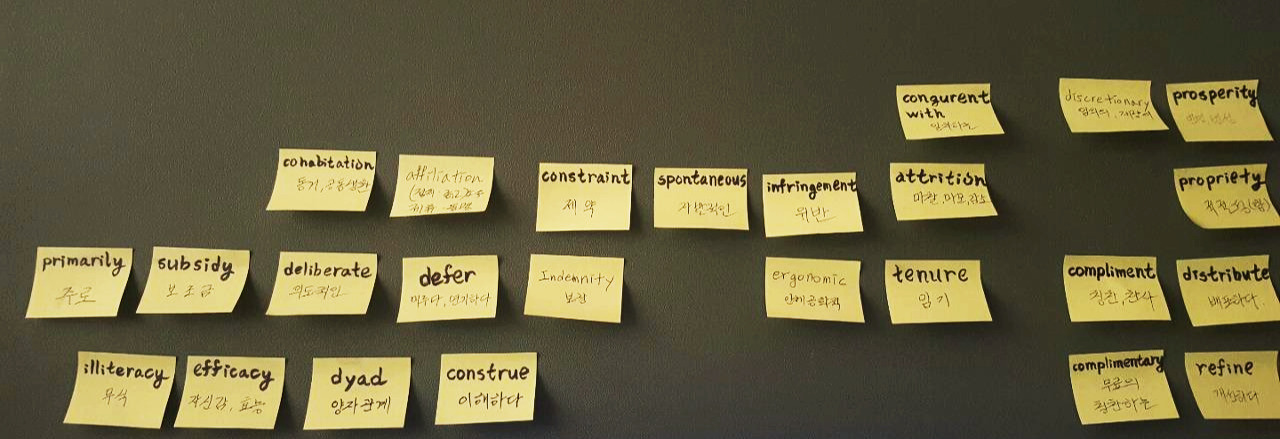 congurent
with
일치하는
discretionary
임의의, 재량의
prosperity
번영, 번성
cohabitation
동거, 공동생활
affiliation
constraint
제약
spontaneous
자발적인
infringement
위반
attrition
마찬, 마모, 감소
propriety
적절(타당)함
primarily
주로
subsidy
보조금
deliberate
의도적인
defer
미루다, 연기하다
Indemnity
보장
ergonomic
인체공학적
tenure
임기
compliment
칭찬, 찬사
distribute
배포하다
illiteracy
무식
efficacy
자신감, 효능
dyad
양자관계
construe
이해하다
complimentary
무료의
칭찬하는
refine
개선하다